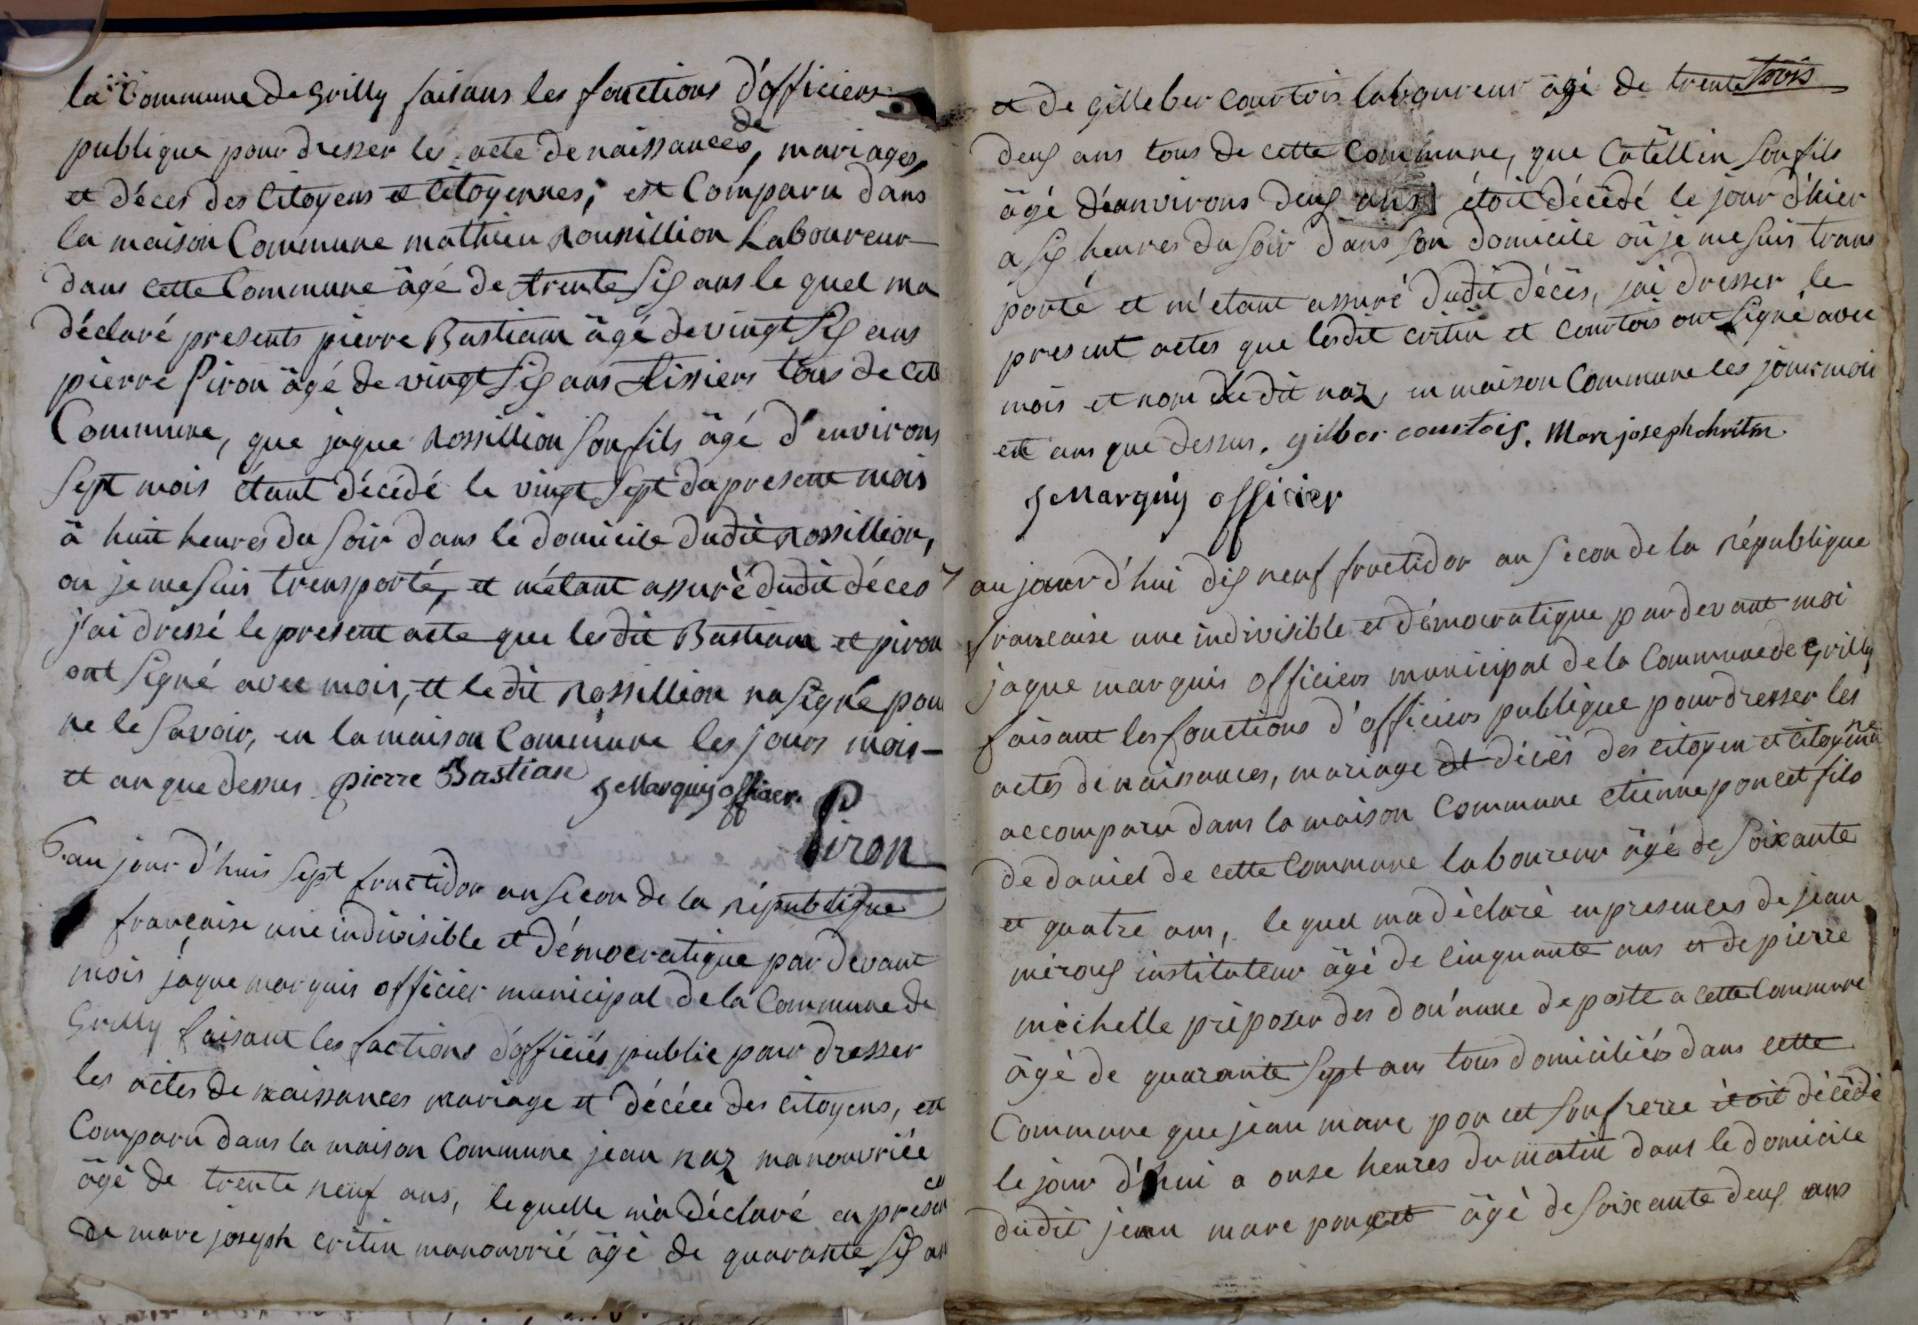 la Commune de Grilly faisans les fonctions d'officiers
publique pour dresser les acte de naissances, de mariages,
et décès des Citoyens et Citoyennes, est Comparu dans
la maison Commune mathieu Rousillion Laboureur
dans cette Commune âgé de trente six ans le quel ma
déclaré presents pierre Bastian âgé de vingt six ans
pierre Piron âgé de vingt six ans tissiers tous de cette
Commune, que jaque Rossillion son fils âgé d'environs
sept mois étant décédé le vingt sept du present mois
à huit heures du soir dans le domicile dudit Rossillion,
ou je me suis transporté, et m'étant assuré dudit décès
j'ai dressé le present acte que lesdit Bastian et piron
ont signé avec mois, et le dit Rossillion na signé pour
ne le savoir, en la maison Commune les jours mois
et an que dessus pierre Bastian J Marquis officier
Piron
6. au jour d'huis sept fructidor an secon de la république
française une indivisible et démocratique par devant
mois jaque marquis officier municipal de la Commune de
Grilly faisant les factions d'officiés public pour dresser
les actes de naissances mariage et décée des Citoyens, est
Comparu dans la maison Commune jean naz manouvriée
âgé de trente neuf ans, le quelle m'à déclaré en présence
de marc joseph critin manouvrié âgé de quarante six ans
et de gilleber courtois laboureur âgé de trente trois
deux ans tous de cette Commune, que Catellin son fils
âgé d'eanvirons deux ans étoit décédé le jour d'hier
a six heures du soir dans son domicile où je me suis trans
porté et m'étant assuré dudit décès, jai dresser le
present actes que lesdit critin et courtois ont signé avec
mois et non le dit naz, en maison Commune les jours mois
et ans que dessus. gilber courtois. Marc joseph chritin
J Marquis officier
7 au jourd'hui dix neuf fructidor an secon de la république
francaise une indivisible et démocratique par devant moi
jaque marquis officiers municipal de la Commune de Grilly
faisant les fonctions d'officiers publique pour dresser les
actes de naissances, mariage et décès des citoyen et citoyenne
a comparu dans la maison Commune etienne poncet fils
de daniel de cette Commune laboureur âgé de soixante
et quatre ans, le quel ma déclaré en presences de jean
méroux instituteur âgé de cinquante ans et de pierre
michelle préposer des dou'anne de poste a cette Commune
âgé de quarante sept ans tous domiciliés dans cette
Commune que jean marc poncet son frerre étoit décédé
le jour d'hui a onse heures du matin dans le domicile
dudit jean marc poncet âgé de soixante deux ans